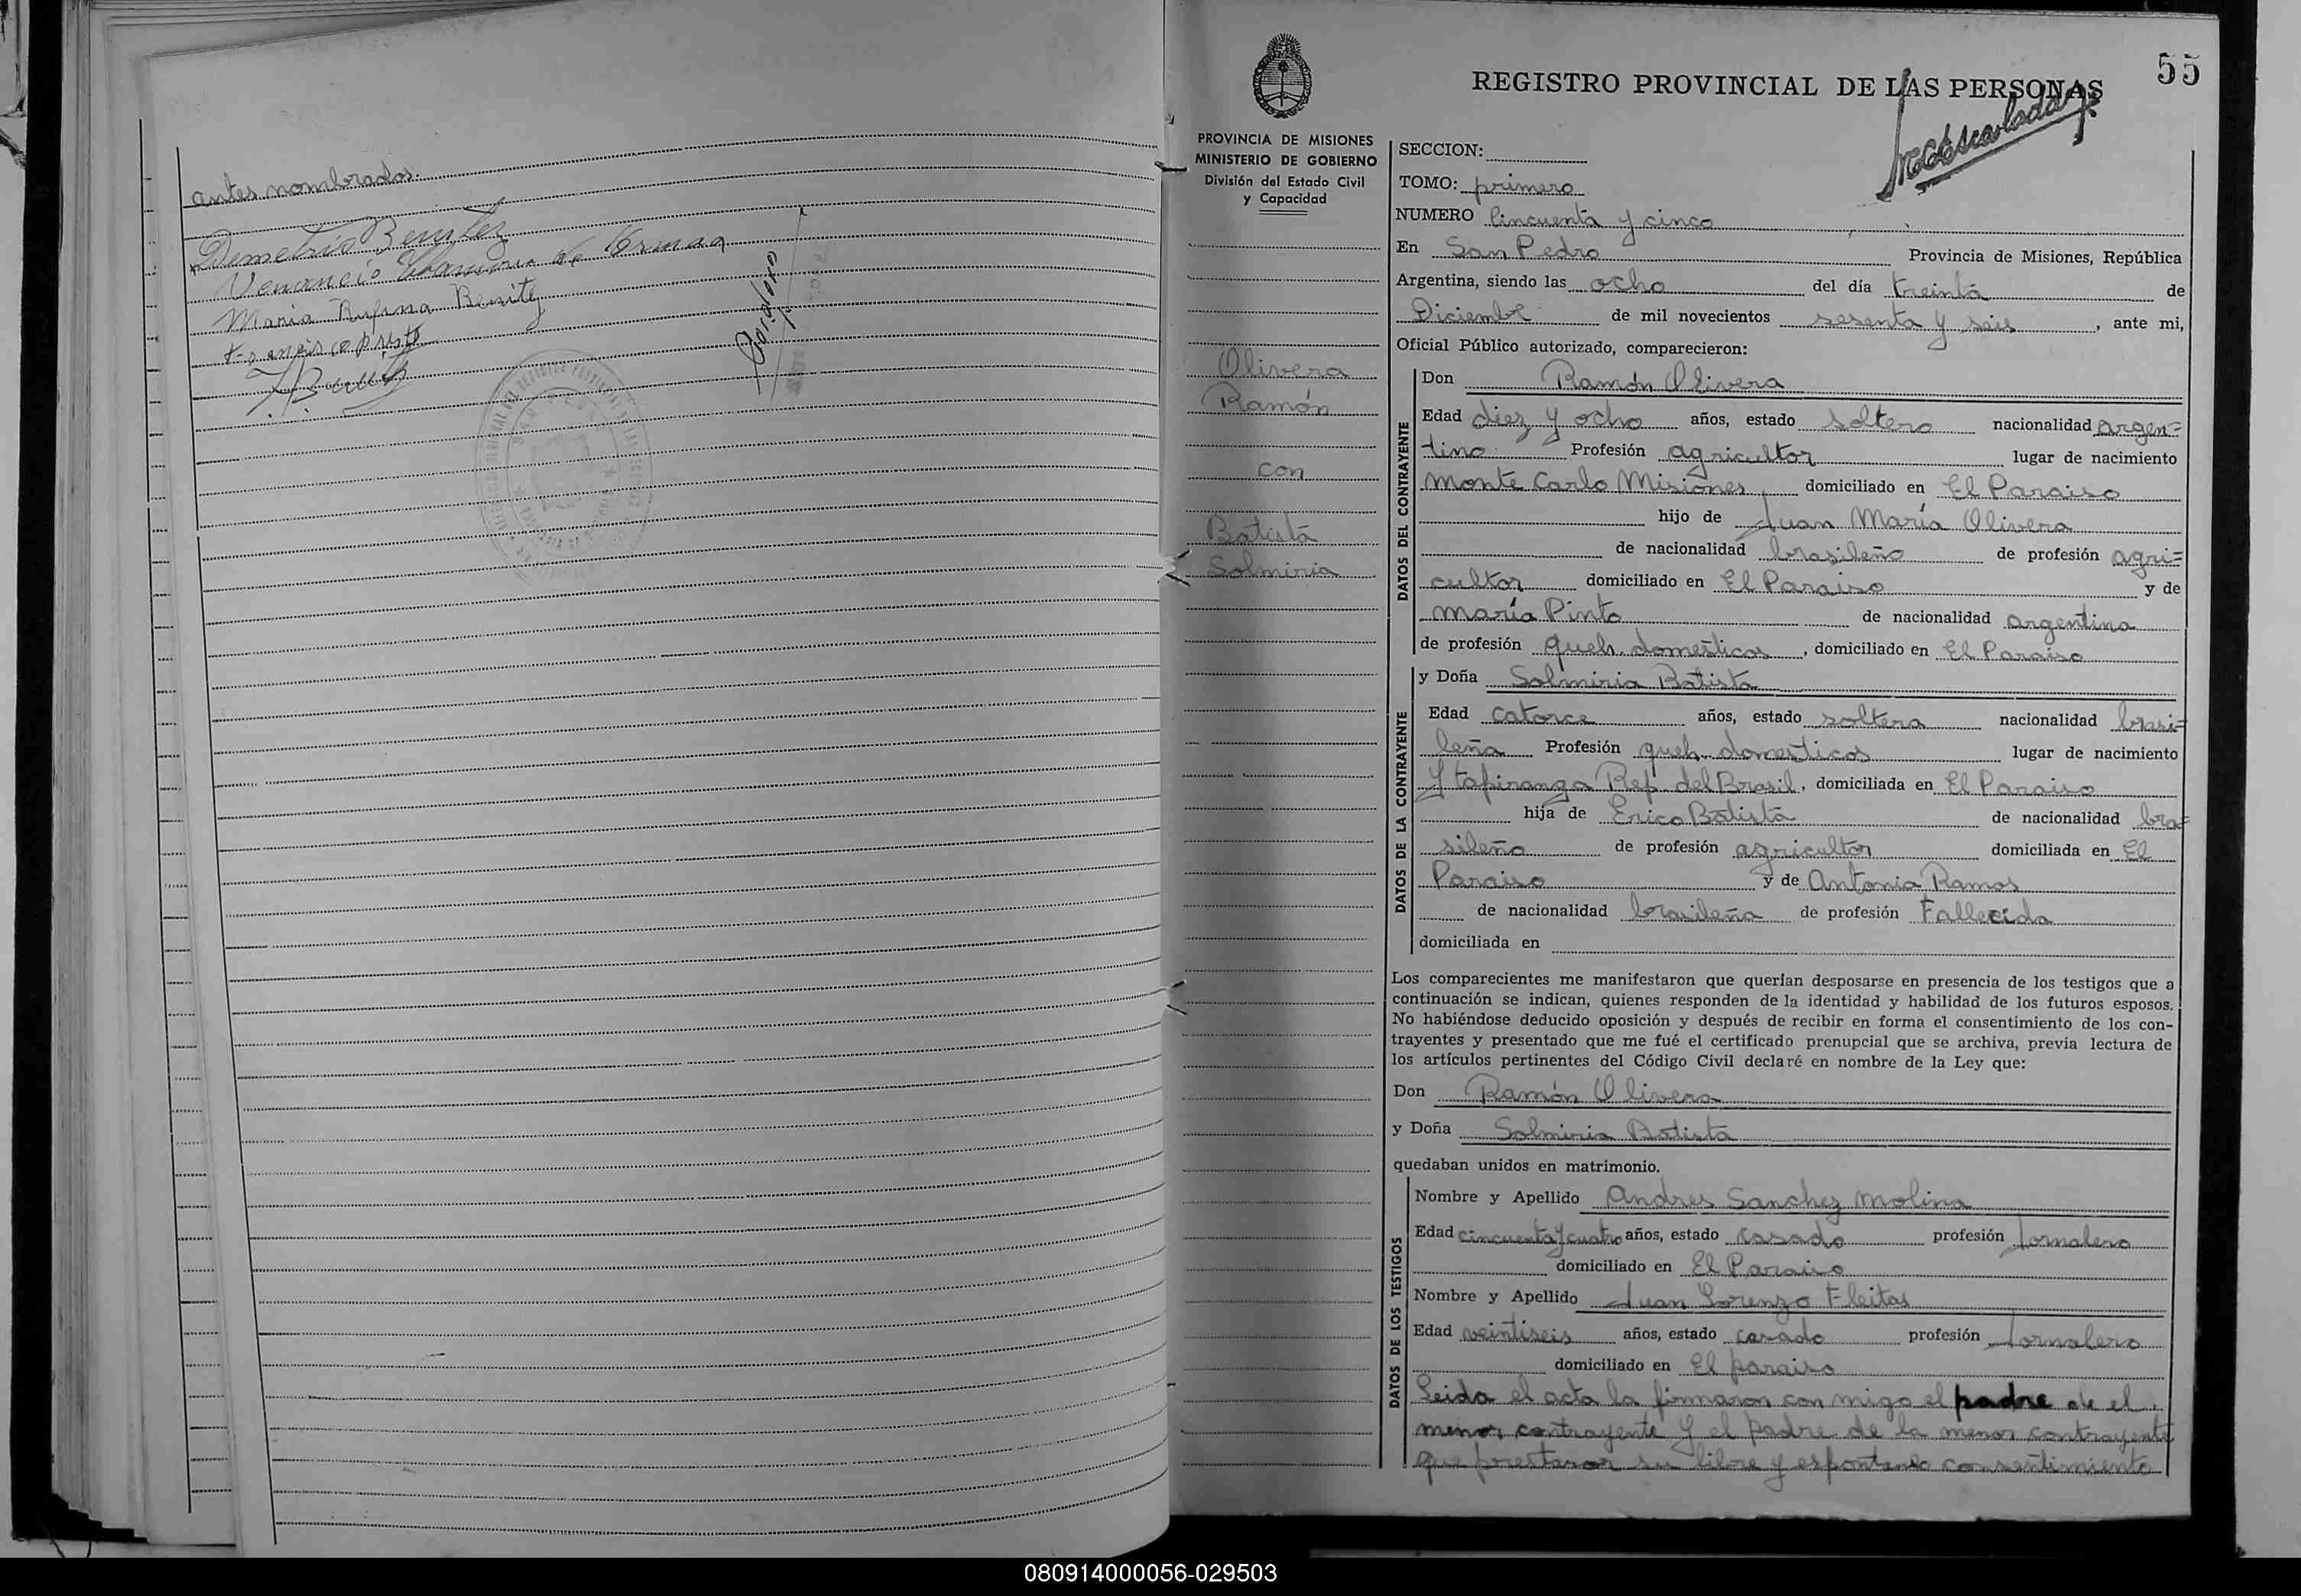 antes nombrados.
Demetrio Benitez
Venancio
Maria Rufina Benitez
55
REGISTRO PROVINCIAL DE LAS PERSONAS
PROVINCIA DE MISIONES
MINISTERIO DE GOBIERNO
División del Estado Civil
y Capacidad
Olivera
Ramón
con
Batista
Solmiria
SECCION:
TOMO: primero
NUMERO Cincuenta y cinco
En San Pedro Provincia de Misiones, República
Argentina, siendo las ocho del día treinta de
Diciembre de mil novecientos sesenta y seis, ante mi,
Oficial Público autorizado, comparecieron:
DATOS DEL CONTRAYENTE
Don Ramón Olivera
Edad diez y ocho años, estado soltero nacionalidad argen=
tino Profesión agricultor lugar de nacimiento
Monte Carlo Misiones domiciliado en El Paraiso
hijo de Juan María Olivera
de nacionalidad brasileño de profesión agri=
cultor domiciliado en El Paraiso y de
María Pinto de nacionalidad argentina
de profesión queh. domesticos, domiciliado en El Paraiso
DATOS DE LA CONTRAYENTE
y Doña Solmiria Batista
Edad catorce años, estado soltera nacionalidad brasi=
leña Profesión queh. domesticos lugar de nacimiento
Ytapiranga Rep. del Brasil, domiciliada en El Paraiso
hija de Erico Batista de nacionalidad bra=
sileño de profesión agricultor domiciliada en El
Paraiso y de Antonia Ramos
de nacionalidad brasileña de profesión Fallecida
domiciliada en
Los comparecientes me manifestaron que querían desposarse en presencia de los testigos que a
continuación se indican, quienes responden de la identidad y habilidad de los futuros esposos.
No habiéndose deducido oposición y después de recibir en forma el consentimiento de los con-
trayentes y presentado que me fué el certificado prenupcial que se archiva, previa lectura de
los artículos pertinentes del Código Civil declaré en nombre de la Ley que:
Don Ramón Olivera
y Doña Solmiria Batista
quedaban unidos en matrimonio.
DATOS DE LOS TESTIGOS
Nombre y Apellido Andres Sanchez Molina
Edad cincuenta y cuatro años, estado casado profesión Jornalero
domiciliado en El Paraiso
Nombre y Apellido Juan Lorenzo Fleitas
Edad veintiseis años, estado casado profesión Jornalero
domiciliado en El paraiso
Leida el acta la firmaron con migo el padre de el
menor contrayente y el padre de la menor contrayente
que prestaron su libre y espontaneo consentimiento
080914000056-029503